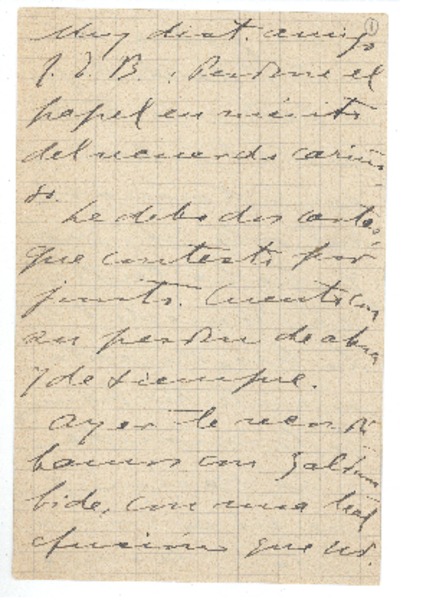 Muy dist. amigo
J. E. B.: Perdone el
papel en mérito
del recuerdo cariño-
so.
Le debo dos cartas,
que contesto por
junto. Cuento con
su perdón de ahora
y de siempre.
Ayer le recordá
bamos con Zaldum
bide, con una leal
efusión que Ud.